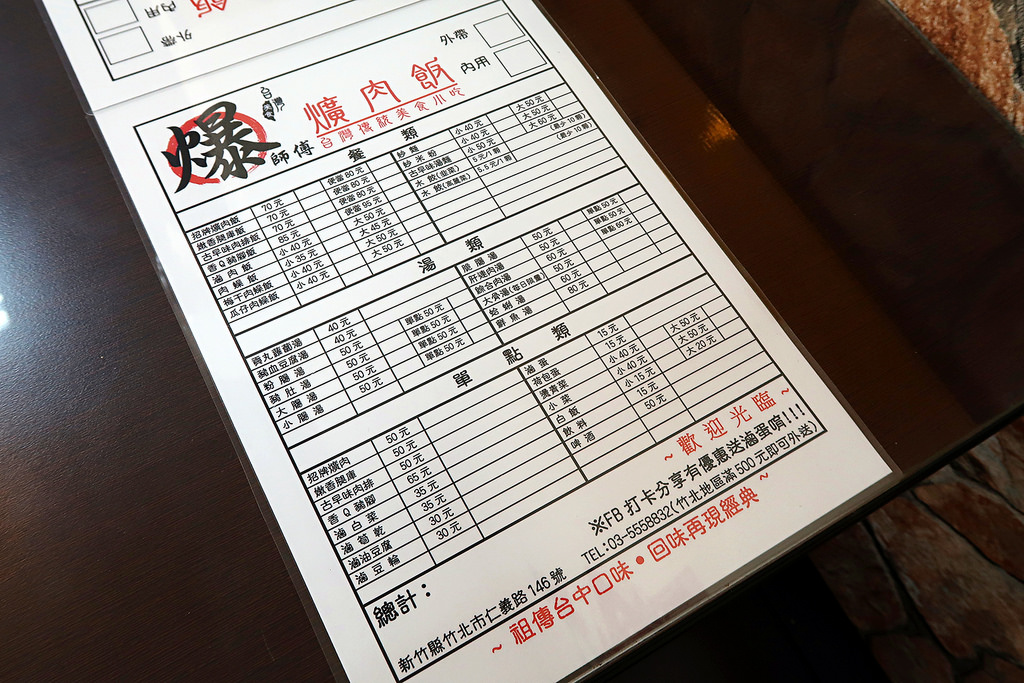 飯
內用
外帶
外帶
內用
爆
師傅
台灣美食
爌肉飯
台灣傳統美食小吃
餐類
招牌爌肉飯 70元 便當80元
嫩香腿庫飯 70元 便當80元
古早味肉排飯 70元 便當80元
香Q豬腳飯 85元 便當95元
滷肉飯 小40元 大50元
肉燥飯 小35元 大45元
梅干肉燥飯 小40元 大50元
瓜仔肉燥飯 小40元 大50元
炒麵 小40元 大50元
炒米粉 小40元 大50元
古早味湯麵 小50元 大60元
水餃(韭菜) 5元/1顆 (最少10顆)
水餃(高麗菜) 5.5元/1顆 (最少10顆)
湯類
貢丸蘿蔔湯 40元
豬血豆腐湯 40元
粉腸湯 50元 單點50元
豬肚湯 50元 單點50元
大腸湯 50元 單點50元
小腸湯 50元 單點50元
脆腸湯 50元 單點50元
肝連肉湯 50元 單點50元
綜合肉湯 60元 單點60元
大骨湯(每日限量) 50元
蛤蜊湯 60元
鮮魚湯 80元
單點類
招牌爌肉 50元
嫩香腿庫 50元
古早味肉排 50元
香Q豬腳 65元
滷白菜 35元
滷筍乾 35元
滷油豆腐 30元
滷豆輪 30元
滷蛋 15元
荷包蛋 15元
燙青菜 小40元 大50元
小菜 小40元 大50元
白飯 小15元 大20元
飲料 15元
啤酒 50元
~歡迎光臨~
總計:
※FB 打卡分享有優惠送滷蛋唷!!!
新竹縣竹北市仁義路146號 TEL:03-5558832(竹北地區滿500元即可外送)
~祖傳台中口味•回味再現經典~